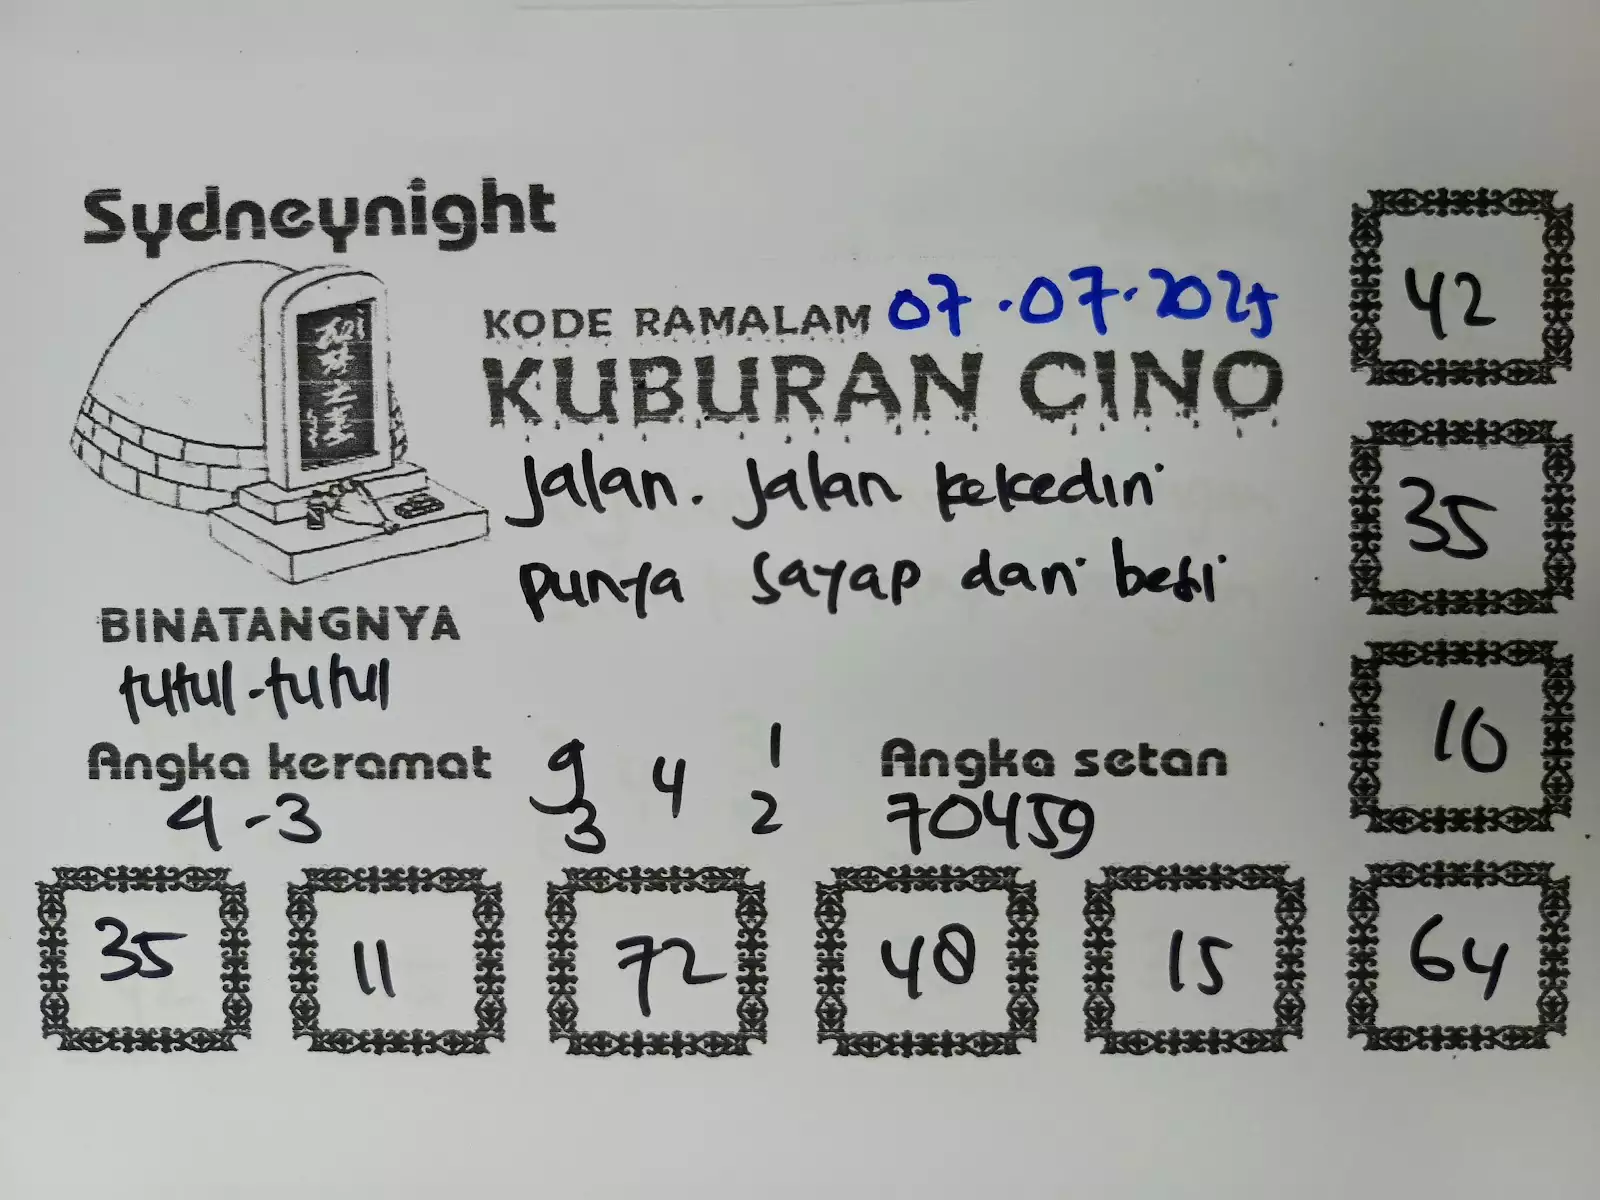 Sydneynight
KODE RAMALAM 07.07.2025
KUBURAN CINO
Jalan. Jalan kekediri
punya sayap dari besi
BINATANGNYA
tutul-tutul
Angka keramat
4-3
9 4 1
3 2
Angka setan
70459
42
35
10
35 11 72 48 15 64